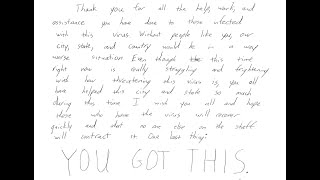 Thank you for all the help, work, and
assistance you have due to those infected
with this virus. Without people like you, our
city, state, and country would be in a way
worse situation. Even though this time
right now is really struggling and frightening
with how threatening this virus is, you all
have helped this city and state so much
during this time. I wish you all and hope
those who have the virus will recover
quickly and that no one else on the staff
will contract it. One last thing:
YOU GOT THIS.